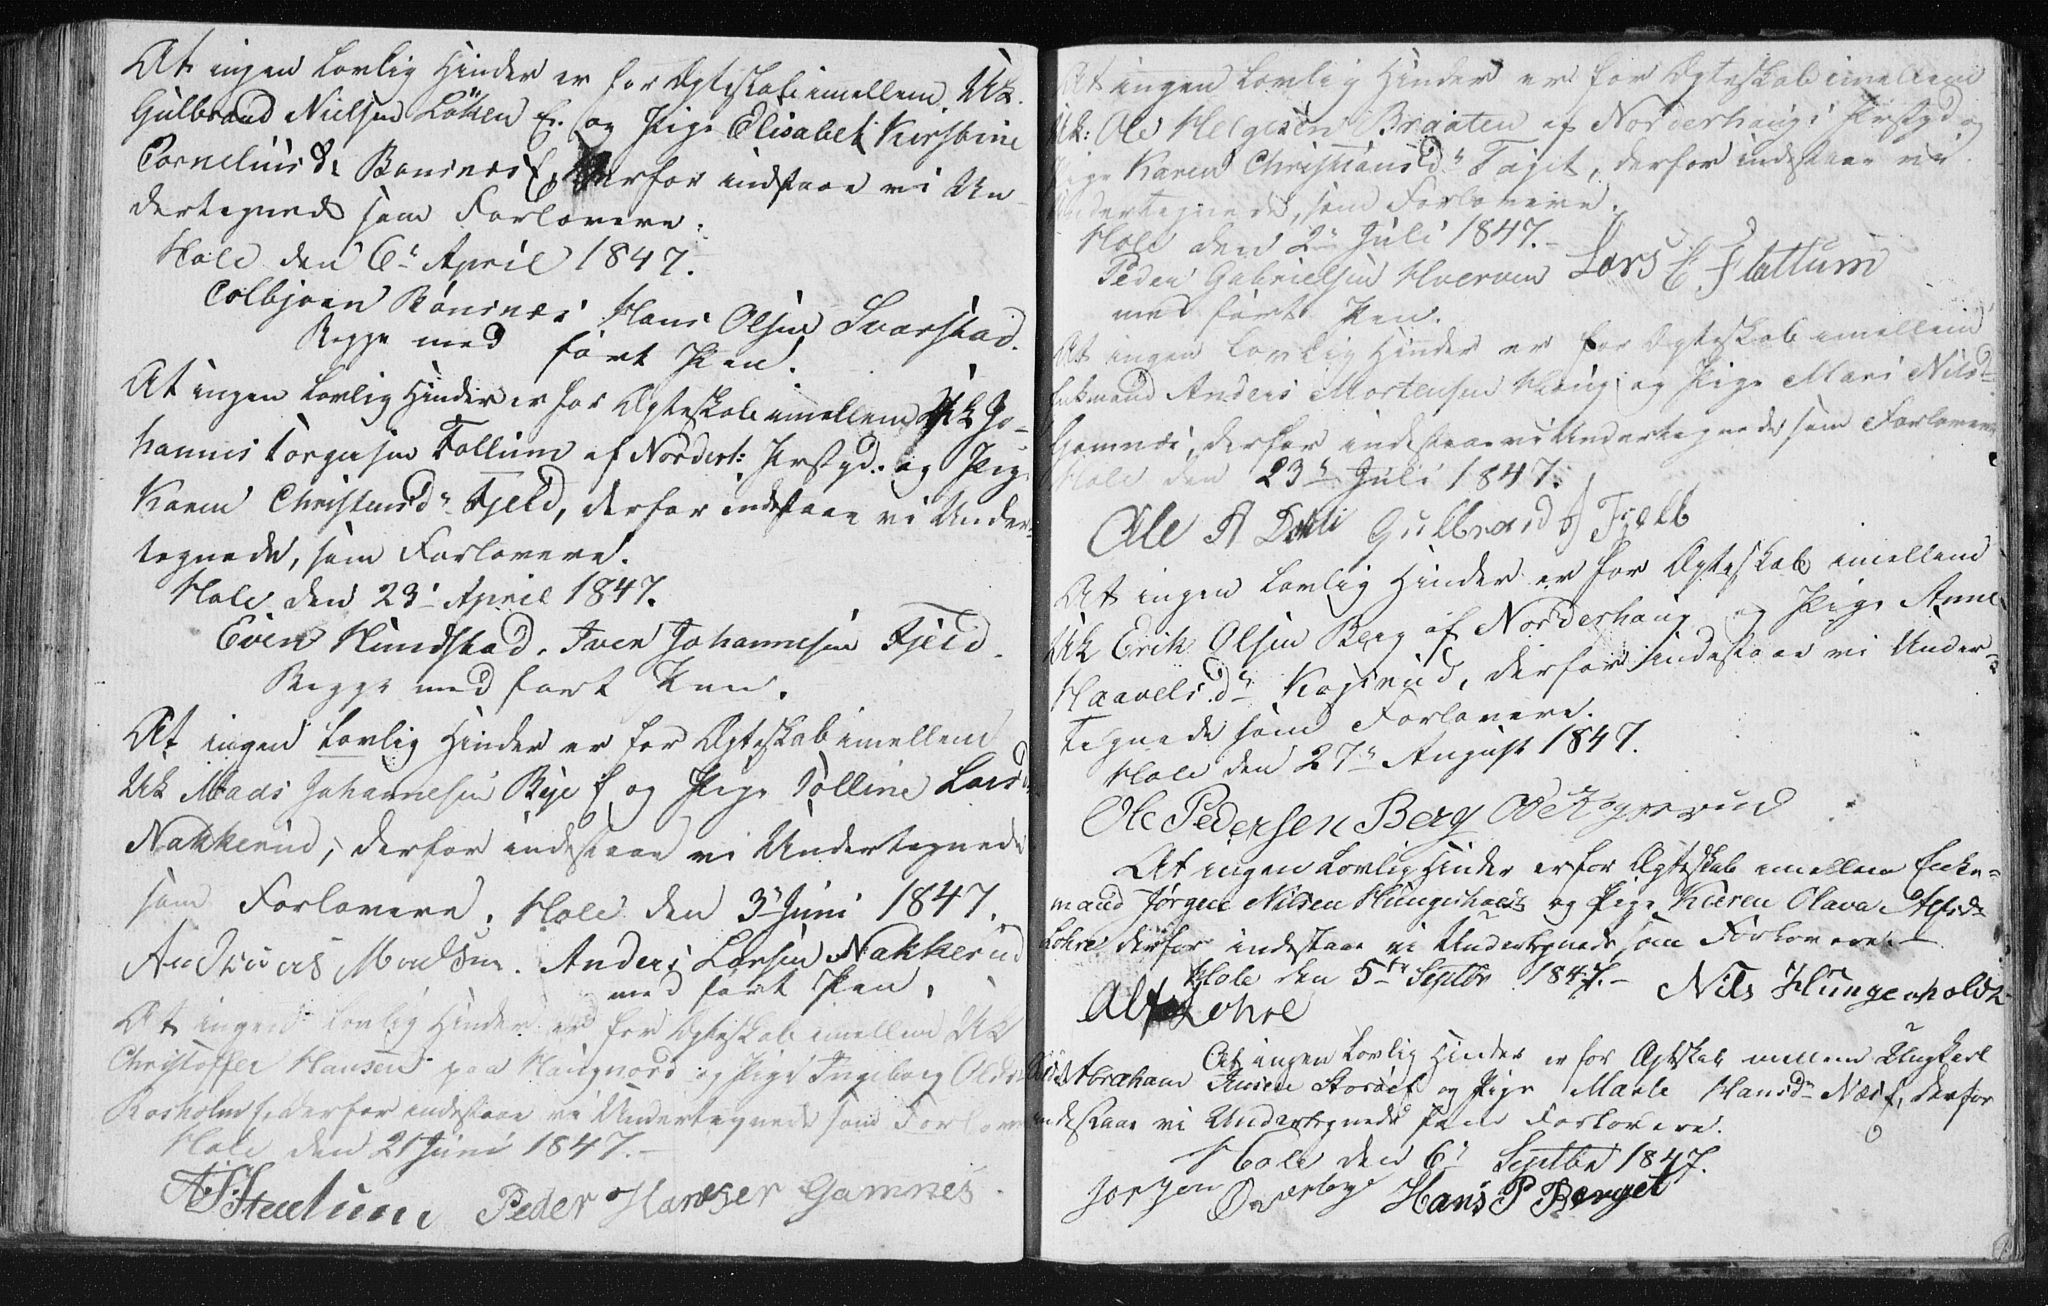 At ingen Lovlig Hinder er for Ægteskab imellem Uk.
Gulbrand Nielsen Löken E. og Pige Elisabet Kirstine
Cornelius d: Bonsnæs E, derfor indstaae vi Un-
dertegnede som Forlovere.
Hole den 6t April 1847.
Colbjørn Bönsnæs Hans Olsen Svarstad.
Begge med ført Pen.
At ingen Lovlig Hinder er for Ægteskab imellem Uk Jo-
hannes Torgersen Follum af Norderh: Præstgd. og Pige
Karen Christensdr Fjeld, derfor indstaae vi Under-
tegnede, som Forlovere.
Hole den 23t April 1847.
Even Hundstad. Iver Johannesen Fjeld
Begge med ført Pen.
At ingen Lovlig Hinder er for Ægteskab imellem
Uk Mads Johannesen Bye E og Pige Tolline Larsd
Nakkerud, derfor indestaae vi Undertegnede
som Forlovere. Hole den 3t Juni 1847.
Andreas Madsen. Anders Larsen Nakkerud
med ført Pen.
At ingen Lovlig Hinder er for Ægteskab imellem Uk
Christoffer Hansen paa Haugnord og Pige Ingeborg Olsd
Rosholm f, derfor indestaae vi Undertegnede som Forlovere
Hole den 21 Juni 1847.
Peder Hansen Gamnes
At ingen Lovlig Hinder er for Ægteskab imellem
Uk: Ole Helgesen Braaten af Norderhaugs Præstgd og
Pige Karen Christiansdr Fajet, derfor indestaae vi
Undertegnede, som Forlovere.
Hole den 2n Juli 1847.
Peder Gabrielsen Hverven Lars E. Flattum
med ført Pen.
At ingen Lovlig Hinder er for Ægteskab imellem
Enkmand Anders Mortensen Haug og Pige Mari Nilsd
Gomnæs, derfor indestaae vi Undertegnede som Forlovere
Hole den 23n Juli 1847.
Ole A Gulbrand J Fjelb
At ingen Lovlig Hinder er for Ægteskab imellem
Uk Erik Olsen Berg af Norderhaug og Pige Anne
Haavelsdr Kogsrud, derfor indestaae vi Under-
tegnede som Forlovere.
Hole den 27n August 1847.
Ole Pedersen Berg Ole Kogsrud
At ingen Lovlig Hinder er for Ægteskab imellem Enke-
mand Jørgen Nilsen Hungerholt og Pige Karen Olava Alfsd
Lohre derfor indestaae vi Undertegnede som Forlovere.
Hole den 5te Septbr 1847. Nils Hungerholdt
Alf Lohre
At ingen Lovlig Hinder er for Ægteskab imellem Ungkarl
Abraham Jensen Storøen og Pige Marte Hansdr Næs f, derfor
indestaae vi Undertegnede som Forlovere.
Hole den 6t Septbr 1847.
Jorgen Hans P Berget